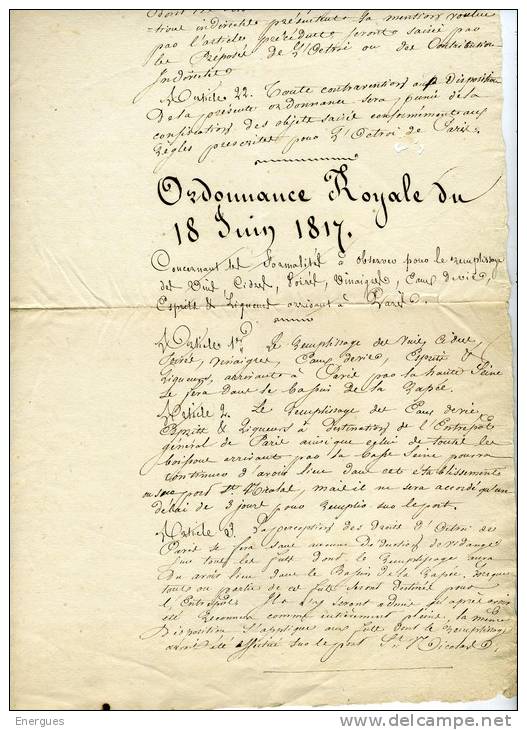 trone indirecte présentant la mention voulue
par l'article précédent seront saisie par
les Préposé de L'Octroi ou des Contribution
Indirecte
Article 22. Toute contravention aux disposition
De la présente ordonnance sera punie de la
confiscation des objets saisie conformément aux
règles prescrites pour L'Octroi de Paris.
Ordonnance Royale du
18 Juin 1817.
Concernant les Formalités à observer pour le remplissage
des Vins Cidres, Poirés, Vinaigres, Eaux devie,
Esprits & Liqueurs arrivant à Paris.
Article 1er Le Remplissage des Vins, Cidre,
Poiré, vinaigre, Eaux devie, Esprits &
Liqueurs, arrivant à Paris par la haute Seine
se fera dans le bassin de la Rapée.
Article 2. Le Remplissage des Eaux devie,
Esprits & Liqueurs à destination de l'Entrepôt
général de Paris ainsi que celui de toute les
boissons arrivant par la basse Seine pourra
continuer d'avoir lieu dans cet établissement
ou sur port St. Nicolas, mais il ne sera accordé qu'un
délai de 3 jours pour Remplir sur le port.
Article 3. La perception des Droits d'Octroi de
Paris se fera sans aucune Déduction de vidange
sur tous les futs dont le Remplissage aura
Du avoir lieu dans le Bassin de la Rapée, lorsque
tout ou partie de ces futs seront destinés pour
l'Entrepôt. Ils n'y seront admis qu'après avoir
été Reconnus comme entièrement pleins, la même
Disposition s'applique aux futs dont le Remplissage
aurait été effectué sur le port St. Nicolas.
Energues
www.delcampe.net